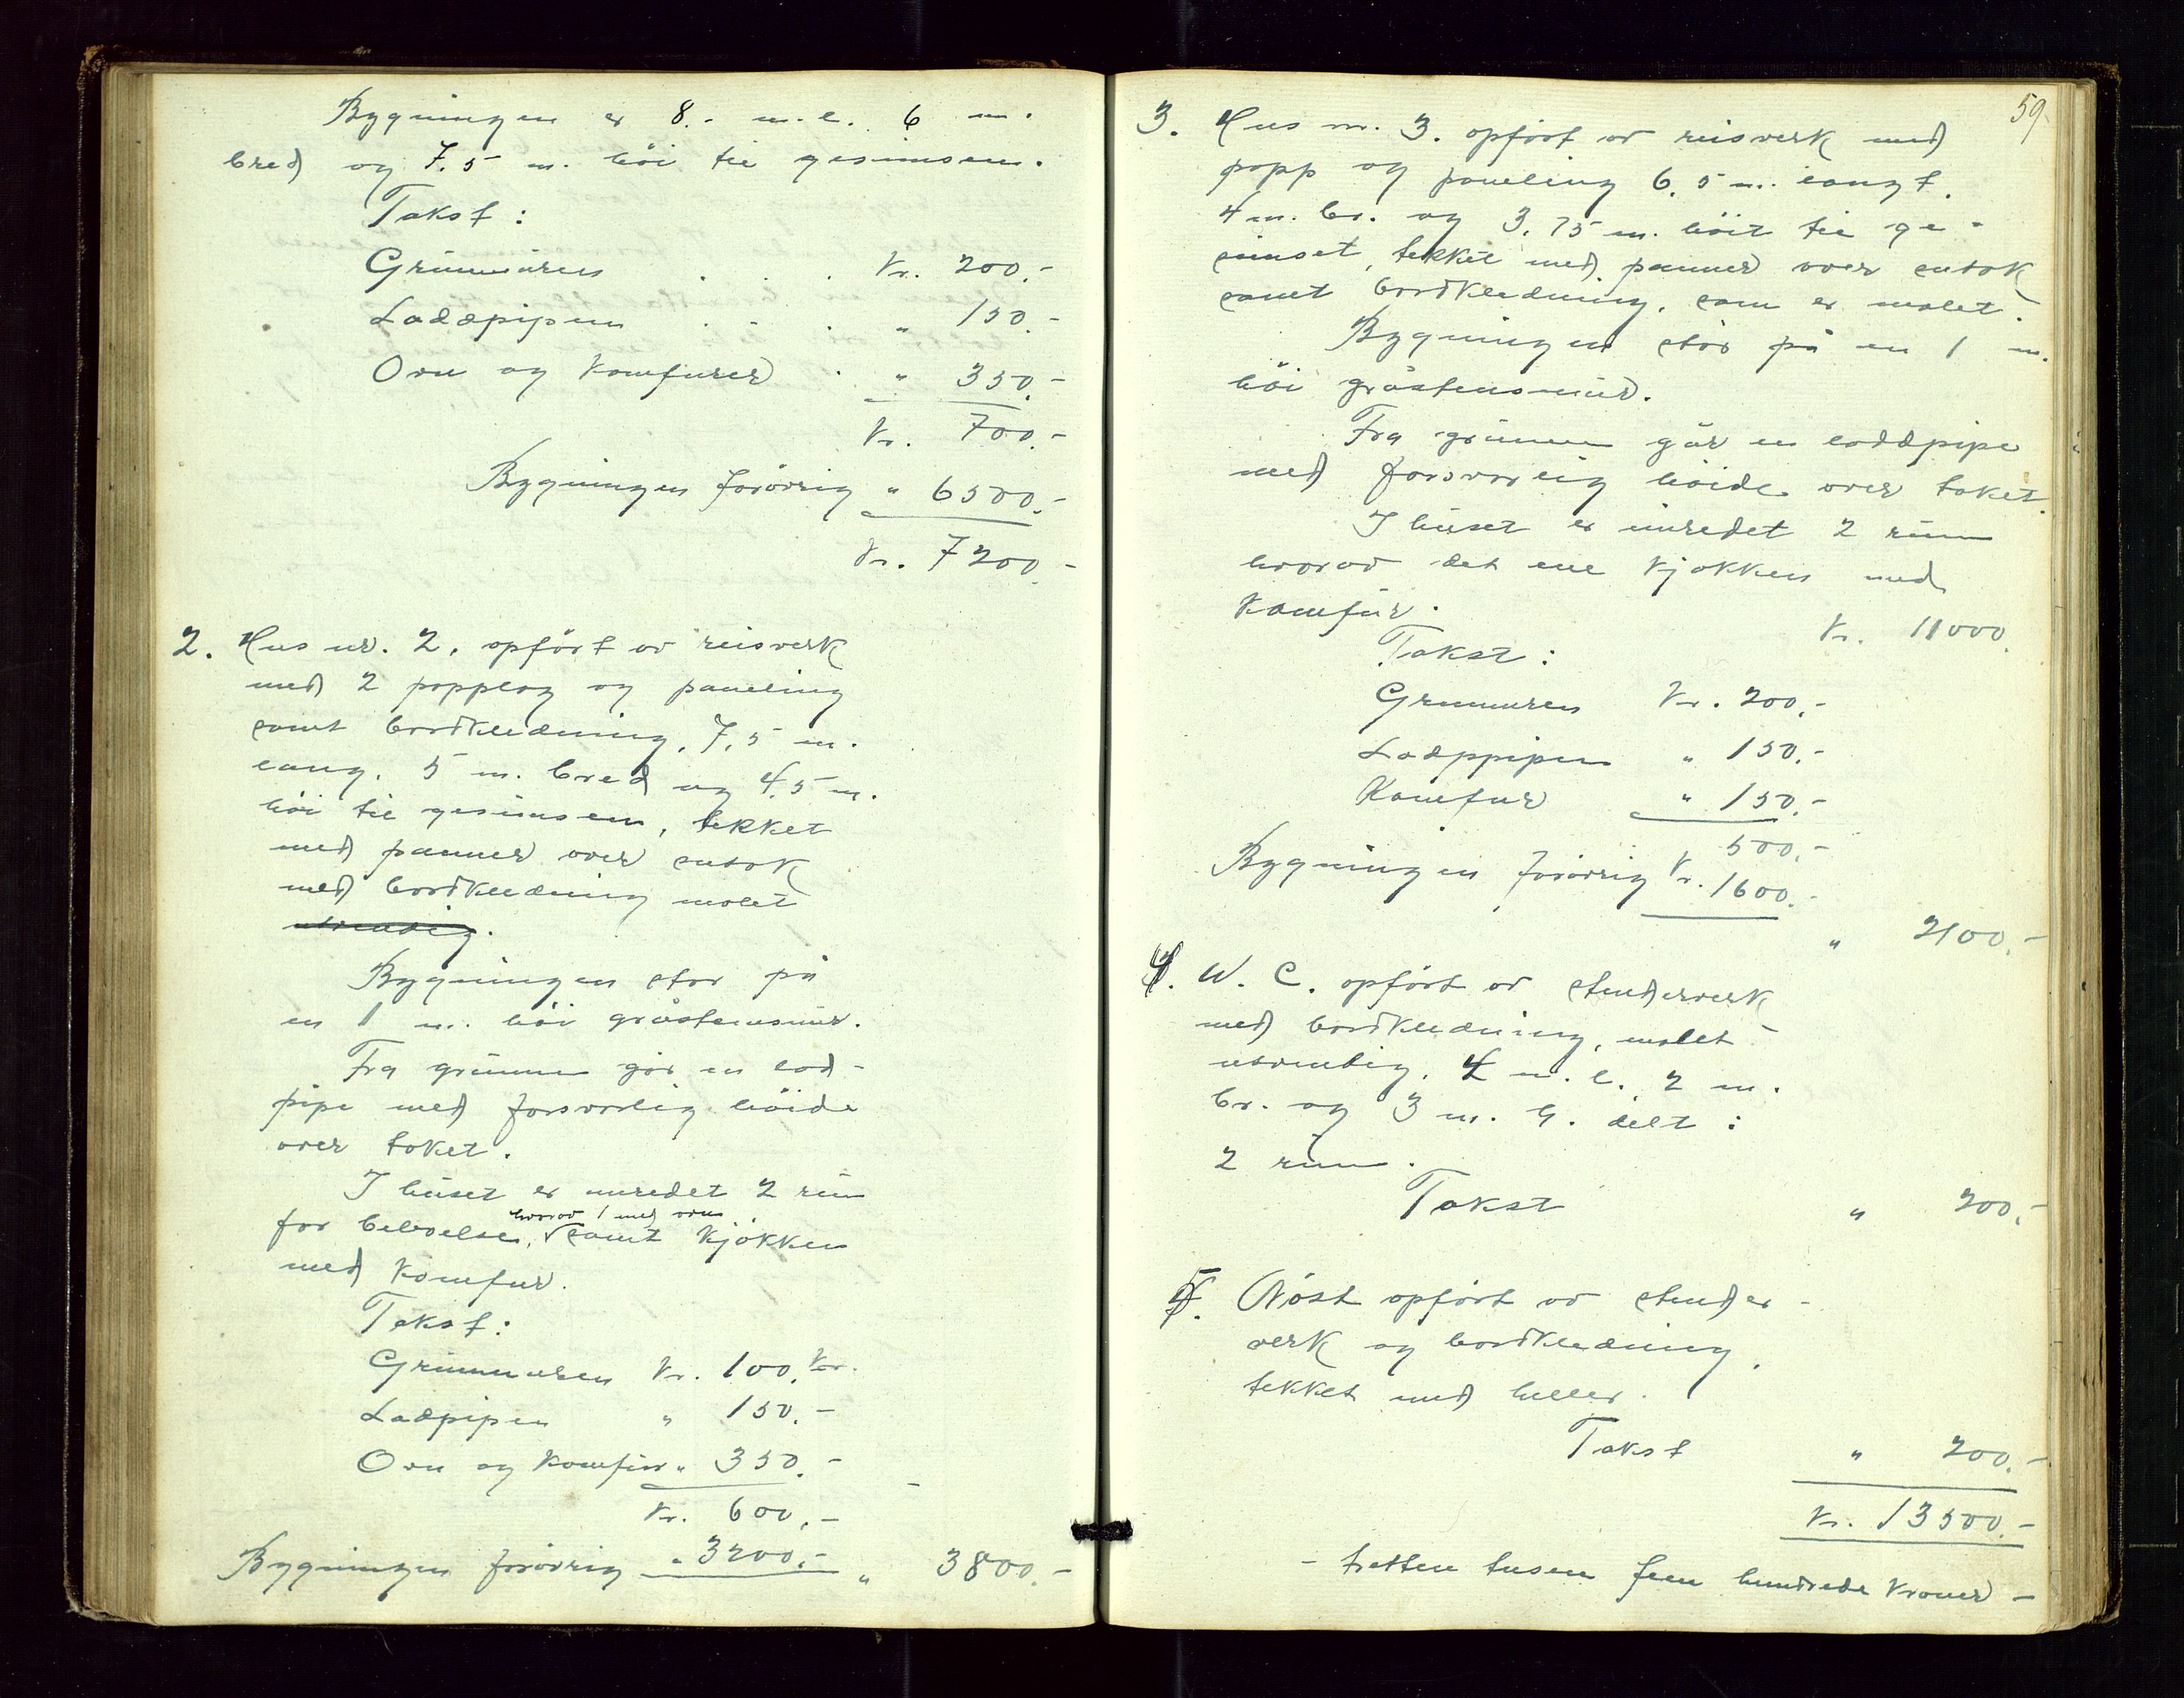 Bygningen er 8.- m. l. 6 m.
bred og 7.5 m. höi til gesimsen.
Takst:
Grünmüren . . . Kr. 200.-
Loddpipen . . . " 150.-
Ovn og komfurer . " 350.-
Kr. 700.-
Bygningen forövrig " 6500.-
Kr. 7200.-
2. Hus nr. 2, opfört av reisverk
med 2 papplag og paneling
samt bordkledning, 7,5 m.
lang, 5 m. bred og 4,5 m.
höi til gesimsen, tekket
med panner over sutak
med bordkledning malet
utvendig.
Bygningen star på
en 1 m. höi gråstensmür.
Fra grünnen går en lod-
pipe med forsvarlig höide
over taket.
I hüset er innredet 2 rüm
hvorav 1 med ovn
for beboelse, samt kjökken
med komfur.
Takst:
Grünnmuren Kr. 100, Kr.
Lodpipen " 150.-
Ovn og komfür " 350.-
Kr. 600,-
Bygningen forövrig " 3200.- " 3800.-
59
3. Hus nr. 3. opfört av reisverk med
papp og paneling 6,5 m. langt,
4 m. br. og 3,75 m. höit til ge-
simset, tekket med panner over sutak
samt bordkledning, som er malet.
Bygningen står på en 1 m.
höi gråstensmür.
Fra grünnen går en loddpipe
med forsvarlig höide over taket.
I hüset er innredet 2 rüm
hvorav det ene kjøkken med
komfür.
Kr. 11000.
Takst:
Grunmuren Kr. 200,-
Lodppipen " 150.-
Komfur " 150.-
500,-
Bygningen forövrig Kr. 1600.-
" 2100.-
4. W. C. opfört av stenderverk
med bordkledning, malet
utvendig, 4 m. l. 2 m.
br. og 3 m. h. delt i
2 rüm.
Takst " 200.-
5. Nöst opfört av stender-
verk og bordkledning,
tekket med heller.
Takst " 200.-
Kr. 13500.-
- tretten tusen fem hundrede kroner -